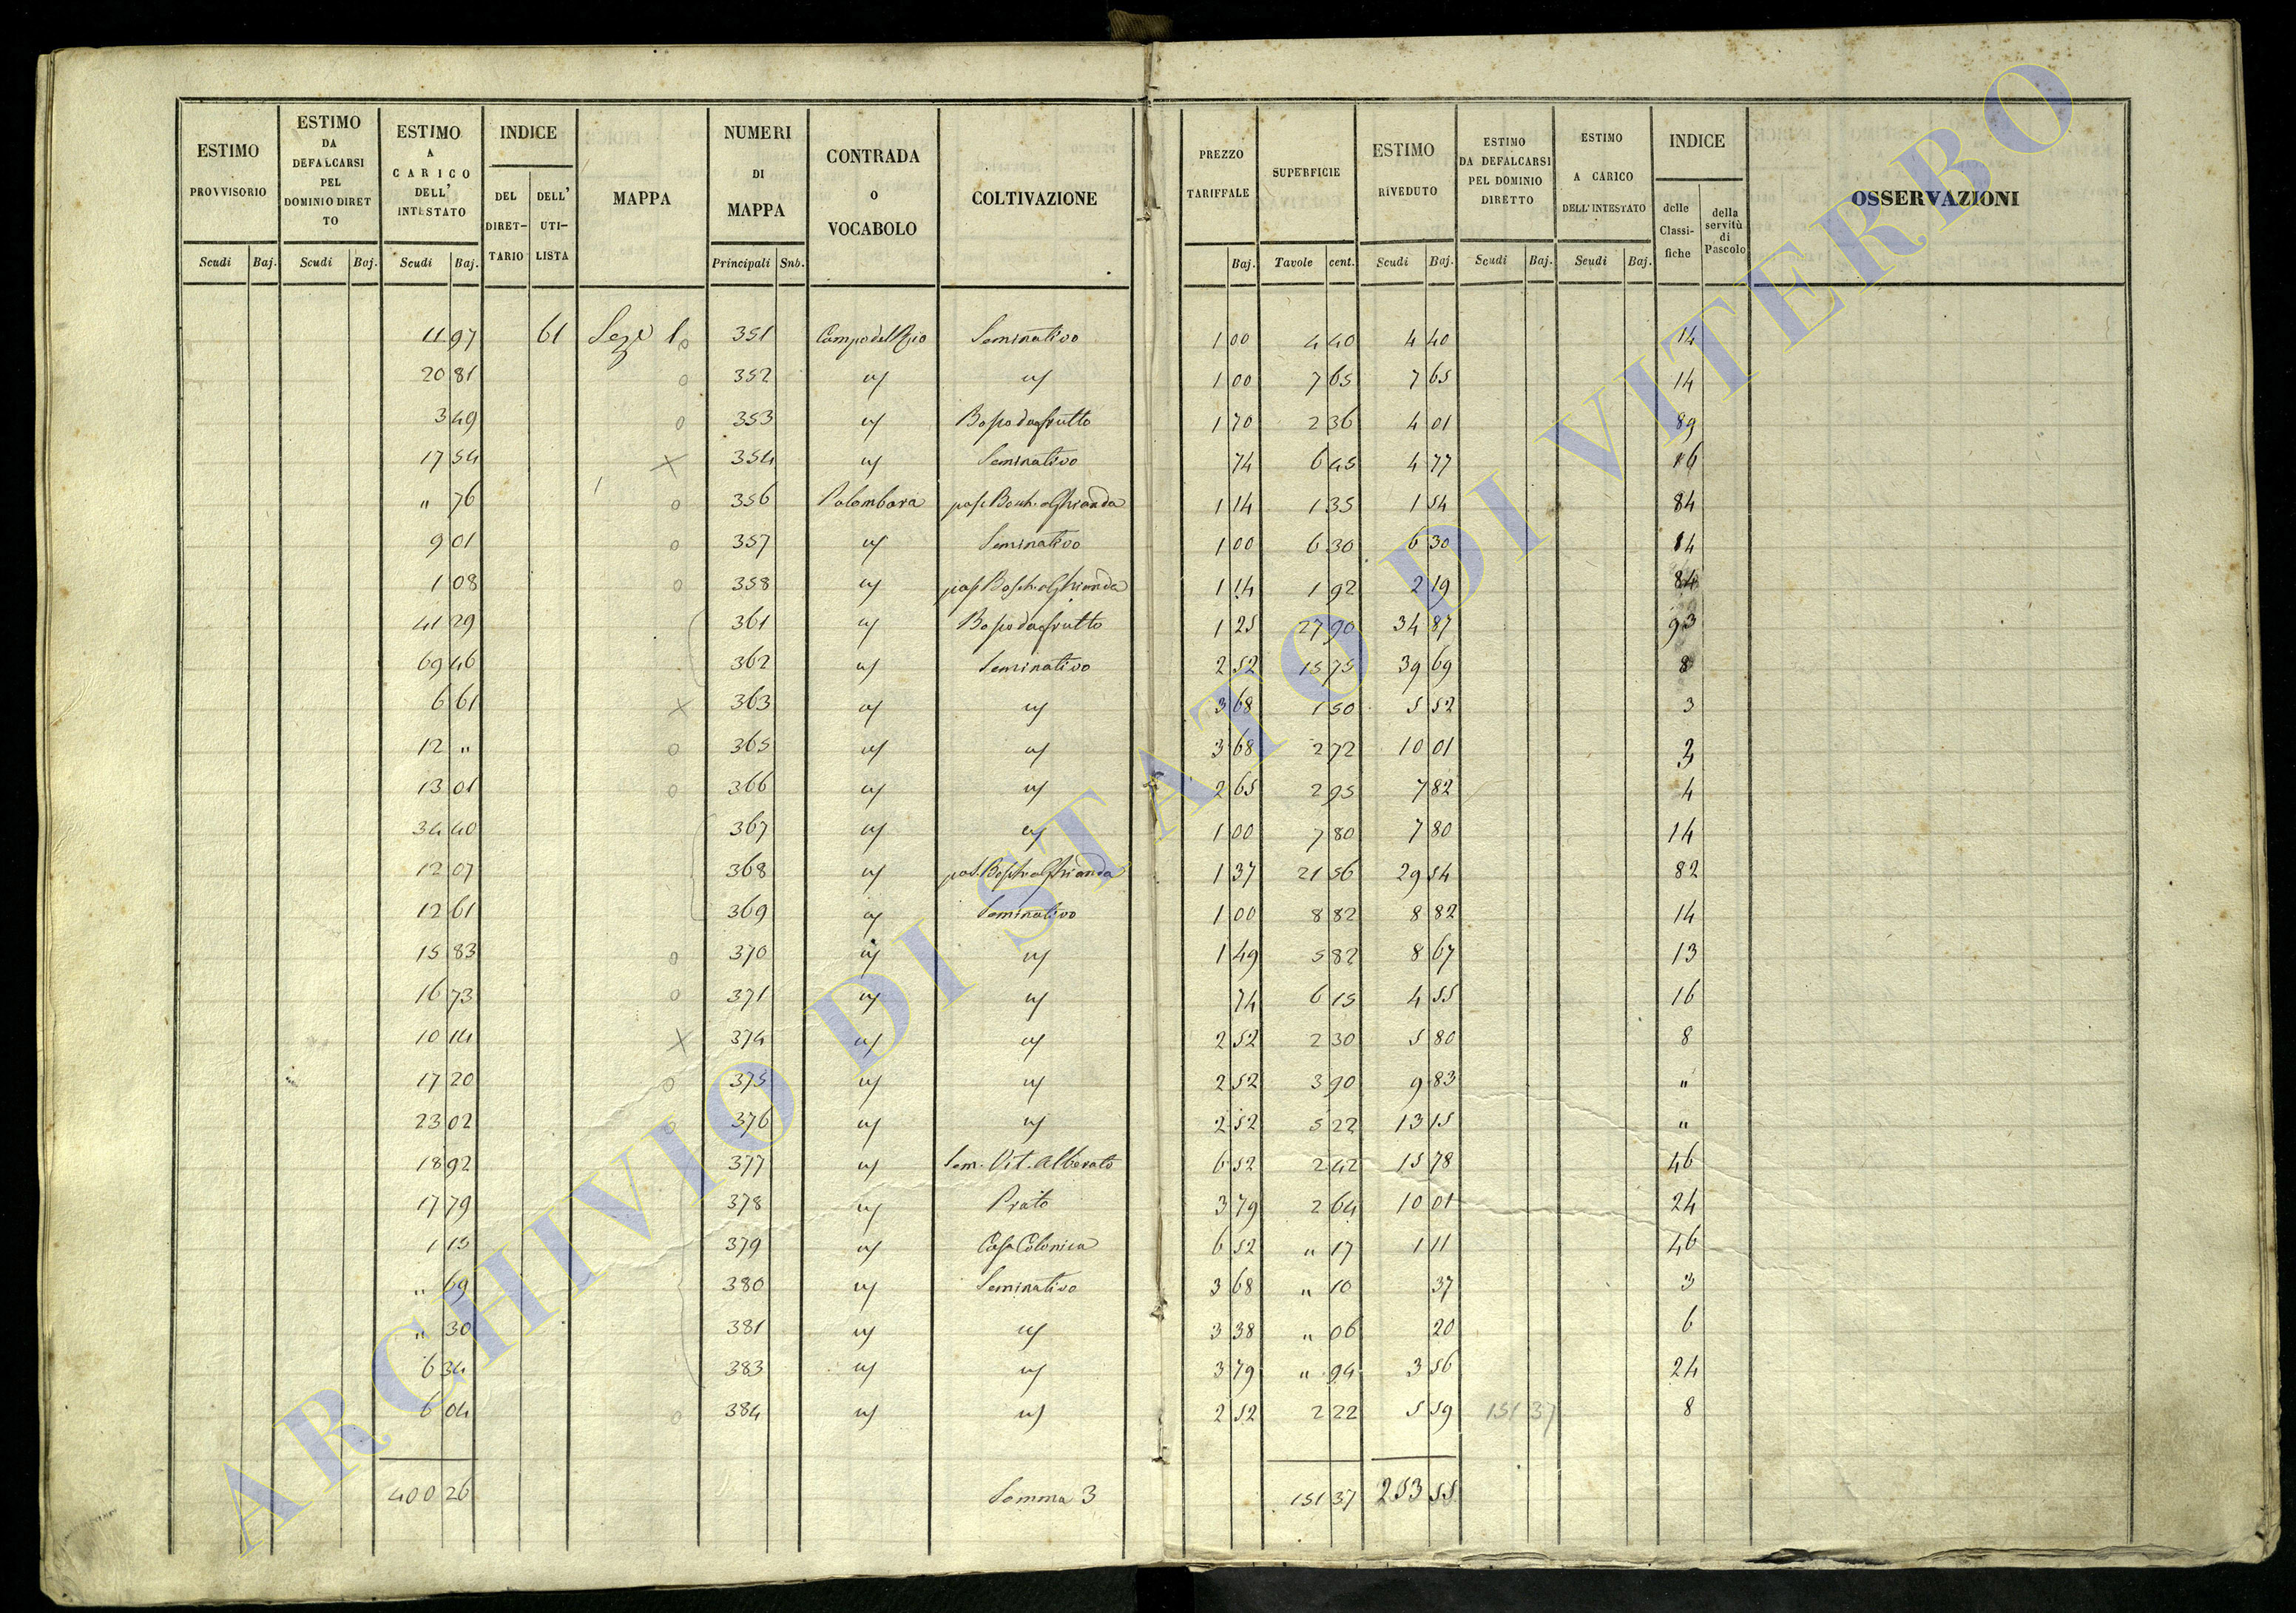 ESTIMO PROVVISORIO Scudi Baj.
ESTIMO DA DEFALCARSI PEL DOMINIO DIRETTO Scudi Baj.
ESTIMO A CARICO DELL' INTESTATO Scudi Baj.
INDICE DEL DIRET-TARIO DELL' UTI-LISTA
MAPPA
NUMERI DI MAPPA Principali Sub.
CONTRADA o VOCABOLO
COLTIVAZIONE
PREZZO TARIFFALE Baj.
SUPERFICIE Tavole cent.
ESTIMO RIVEDUTO Scudi Baj.
ESTIMO DA DEFALCARSI PEL DOMINIO DIRETTO Scudi Baj.
ESTIMO A CARICO DELL'INTESTATO Scudi Baj.
INDICE delle Classi-fiche della servitù di Pascolo
OSSERVAZIONI
11 97 61 Sez.e 1a 351 Seminativo 1 00 4 40 4 40 14
20 81 o 352 " " 1 00 7 65 7 65 14
3 49 o 353 " Bosco da frutto 1 70 2 36 4 01 89
17 54 X 354 " Seminativo 74 6 45 4 77 16
" 76 o 356 Palombara pas. Bosch. a Ghianda 1 14 1 35 1 54 84
9 01 o 357 " Seminativo 1 00 6 30 6 30 14
1 08 o 358 " pas. Bosch. a Ghianda 1 14 1 92 2 19 84
41 29 361 " Bosco da frutto 1 25 27 90 34 87 93
69 46 362 " Seminativo 2 52 15 75 39 69 8
6 61 X 363 " " 3 68 1 50 5 52 3
12 " o 365 " " 3 68 2 72 10 01 3
13 01 o 366 " " 2 65 2 95 7 82 4
34 40 367 " " 1 00 7 80 7 80 14
12 07 368 " pas. Bosch. a Ghianda 1 37 21 56 29 54 82
12 61 369 " Seminativo 1 00 8 82 8 82 14
15 83 o 370 " " 1 49 5 82 8 67 13
16 73 o 371 " " 74 6 15 4 55 16
10 14 X 374 " " 2 52 2 30 5 80 8
17 20 o 375 " " 2 52 3 90 9 83 "
23 02 o 376 " " 2 52 5 22 13 15 "
18 92 377 " Sem. Vit. Alberato 6 52 2 42 15 78 46
17 79 378 " Prato 3 79 2 64 10 01 24
1 15 379 " Casa Colonica 6 52 " 17 1 11 46
" 69 380 " Seminativo 3 68 " 10 37 3
" 30 381 " " 3 38 " 06 20 6
6 34 383 " " 3 79 " 94 3 56 24
6 04 o 384 " " 2 52 2 22 5 59 151 37 8
400 26 Somma 3 151 37 253 55
ARCHIVIO DI STATO DI VITERBO